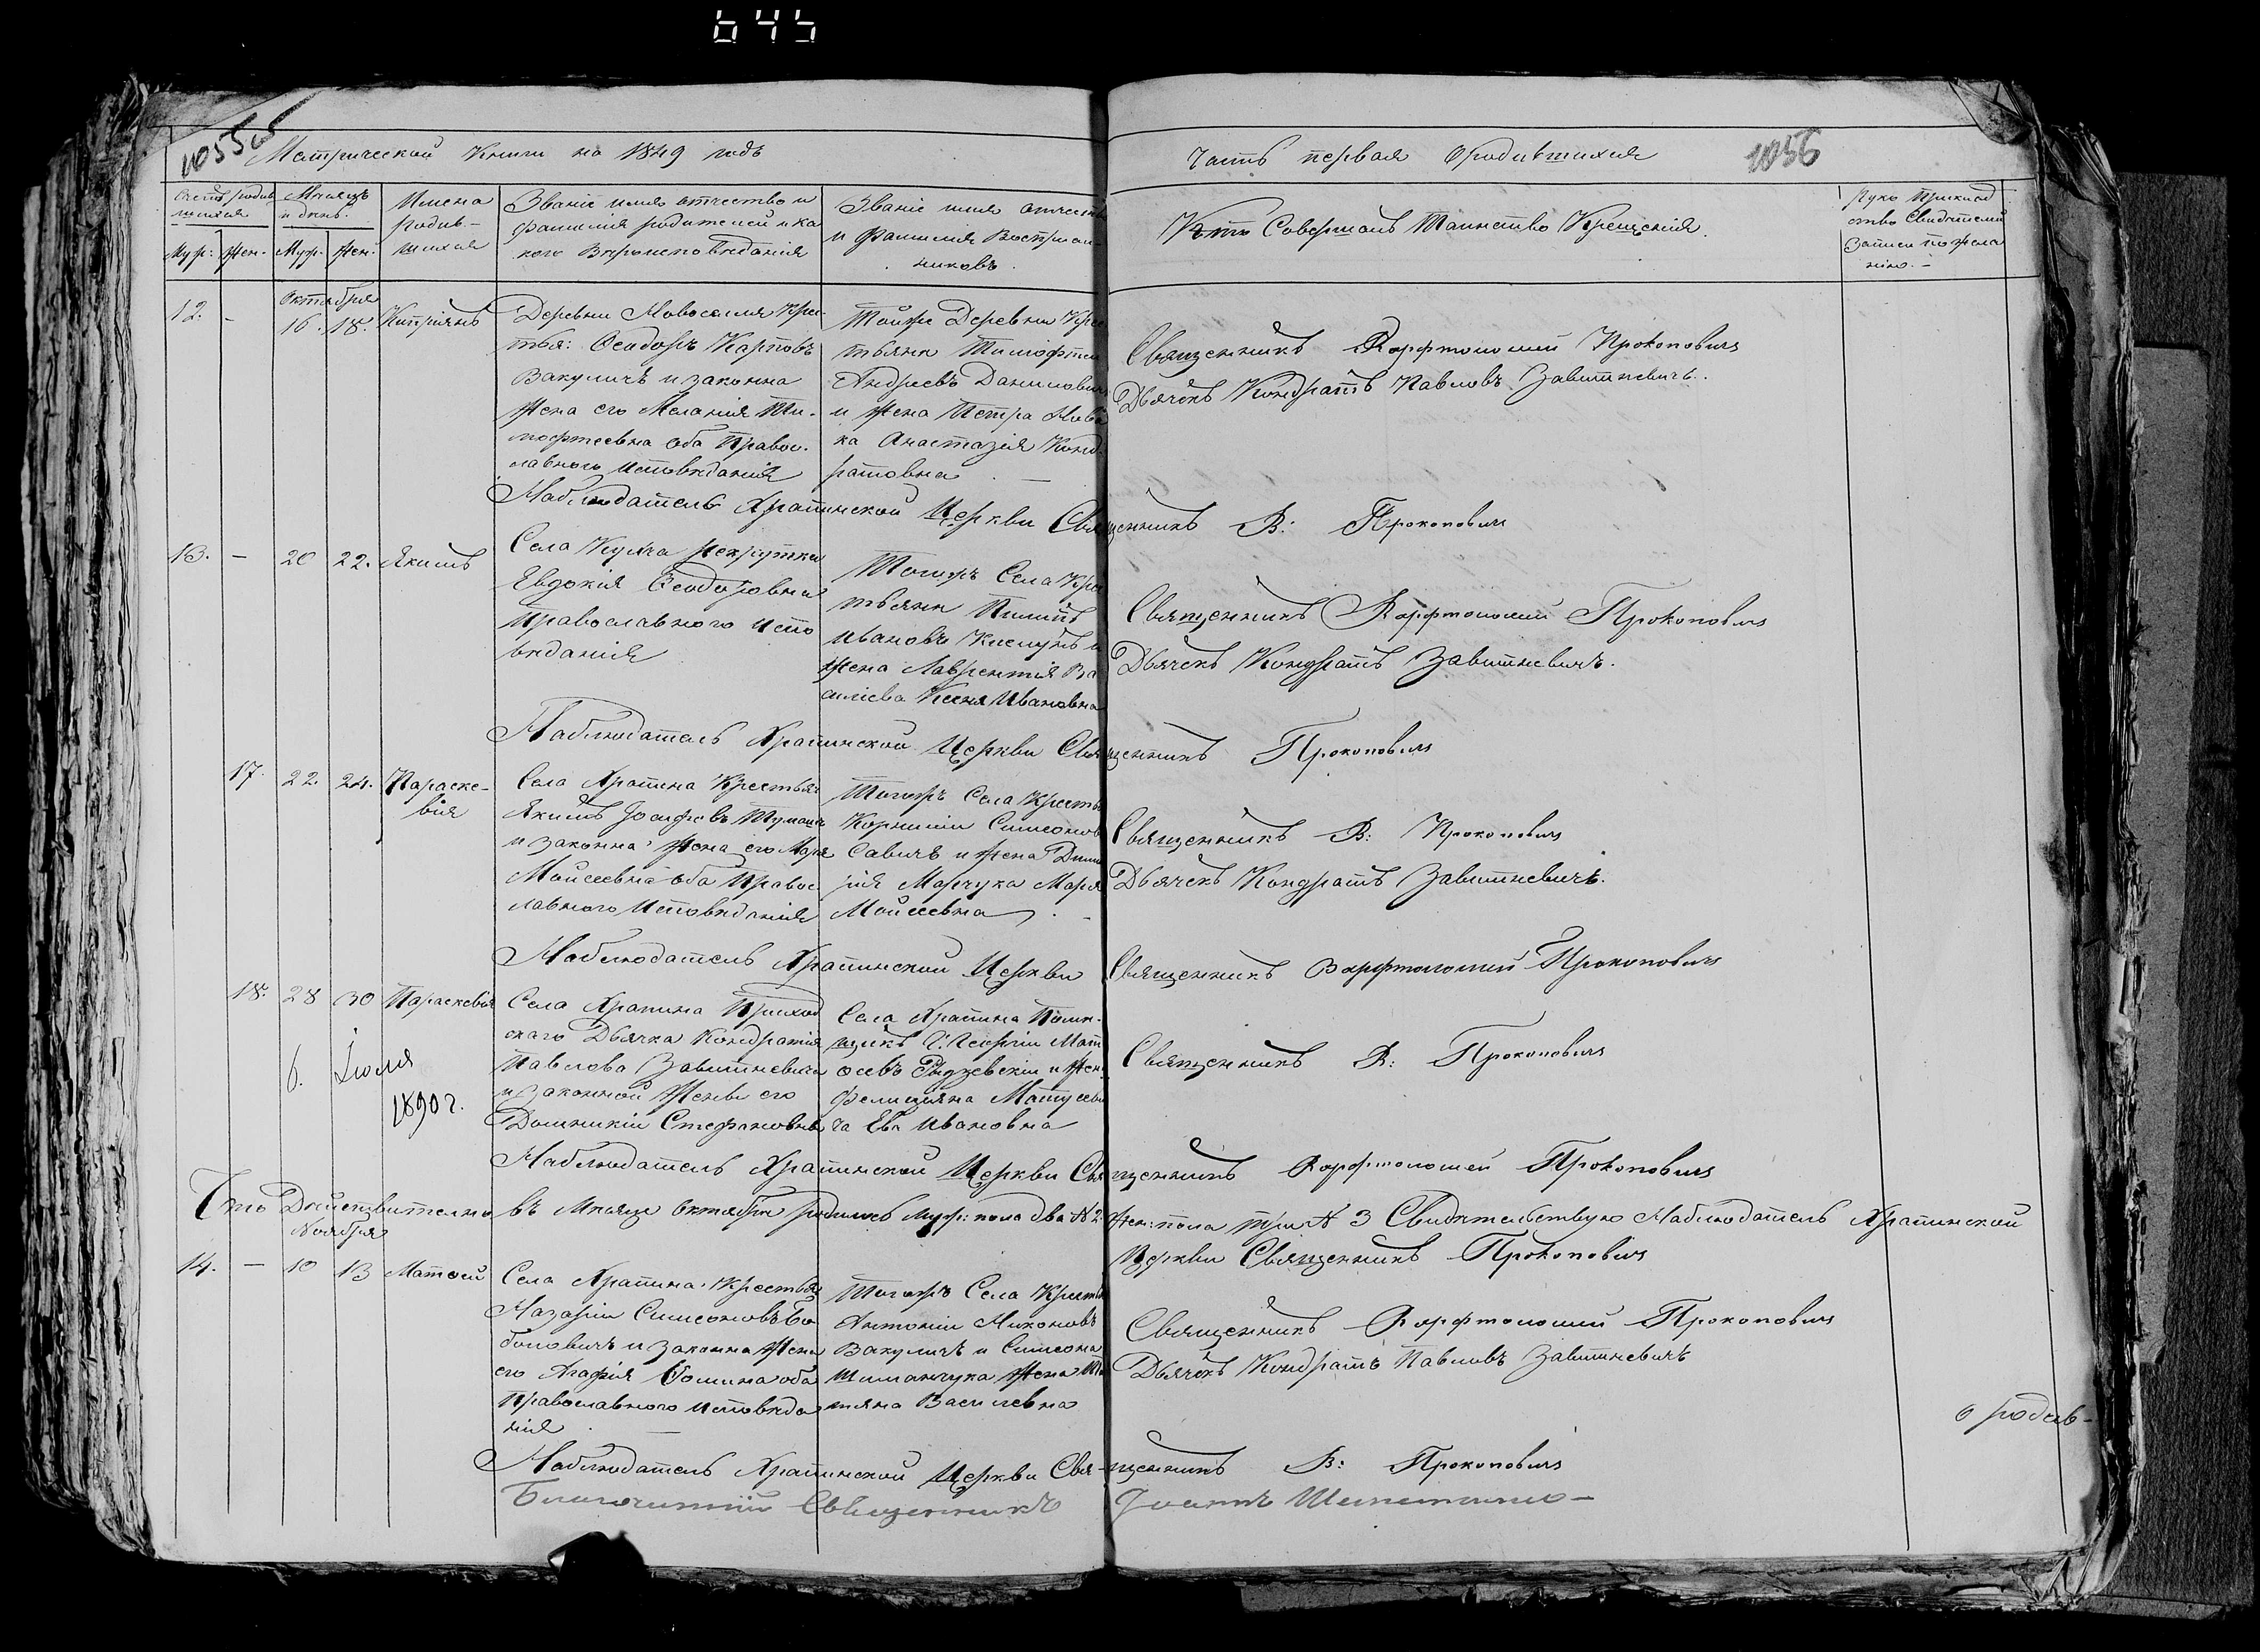 645
1055
Метрической Книги на 1849 годъ
Часть первая О родившихся
1056
Счетъ родив
шихся
Муж: Жен.
Мѣсяцъ
и день.
Муж. Жен.
Имена
родив-
шихся
Званіе имя отчество и
фамилія родителей и ка
кого вѣроисповѣданія
Званіе имя отчество
и фамилія Воспріем-
никовъ.
Кто Совершалъ Таинство Крещенія.
Руко Приклад
ство Свидѣтелей
Записи по жела
нію. -
Октября
12. - 16. 18. Кипріянъ
Деревни Новоселія Крес-
тья: Феодоръ Карповъ
Вакуличъ и законна
жена его Меланія Ти-
мофтеевна оба Правос-
лавного исповѣданія
Тойже Деревни Крес
тьянн Тимофтей
Андреевъ Даниловичъ
и жена Петра Нова
ка Анастазія Конд-
ратовна
Священникъ Варфтоломей Прокоповичъ
Дьячокъ Кондратъ Павловъ Завитневичъ.
Наблюдатель Храпинской Церкви Священникъ В: Прокоповичъ
13. - 20 22. Якимъ
Села рекрутка
Евдокія Феодоровна
Православного испо
вѣданія
Тогожъ Села Крес
тьянн
Ивановъ и
жена Лаврентія Ва
силіева Ивановна
Священникъ Варфтоломей Прокоповичъ
Дьячекъ Кондратъ Завитневичъ.
Наблюдатель Храпинской Церкви Священникъ Прокоповичъ
17. 22. 24. Параске-
вія
Села Храпина Крестьян
Якимъ Іосифовъ
и законна жена его Марія
Мойсеевна оба Правос
лавного исповѣданія
Тогожъ Села Крестья
Корнилій Симеоновъ
Савичъ и жена Дмит
рія Марчука Марія
Мойсеевна
Священникъ В: Прокоповичъ
Дьячекъ Кондратъ Завитневичъ.
Наблюдатель Храпинской Церкви Священникъ Варфтоломей Прокоповичъ
18. 28 30 Параскевія
Села Храпина Приход
скаго Дьячка Кондратія
Павлова Завитневича
и законной жены его
Домникіи Стефановны
Села Храпина Помѣ-
щикъ Г. Георгій Мат
феевъ и жена
Фелиціяна Матусеви
ча Ева Ивановна
6. Іюля
1890 г.
Священникъ В: Прокоповичъ
Наблюдатель Храпинской Церкви Священникъ Варфтоломей Прокоповичъ
Что Дѣйствително въ Мѣсяце Октябрѣ родилось муж: пола два № 2 жен: пола три № 3 Свидѣтельствую Наблюдатель Храпинской
Церкви Священникъ Прокоповичъ
Ноября
14. - 10 13 Матфей
Села Храпина Крестья
Назарій Симеоновъ Бо
биловичъ и законна жена
его Агафія Фомина оба
Православного исповѣда
нія
Тогожъ Села Крестья
Антоній Никоновъ
Вакуличъ и Симеона
Шиманчука жена Та
тіяна Василевна
Священникъ Варфтоломей Прокоповичъ
Дьячекъ Кондратъ Павловъ Завитневичъ
о родив-
Наблюдатель Храпинской Церкви Священникъ В: Прокоповичъ
Благочинный Священникъ Іоаннъ